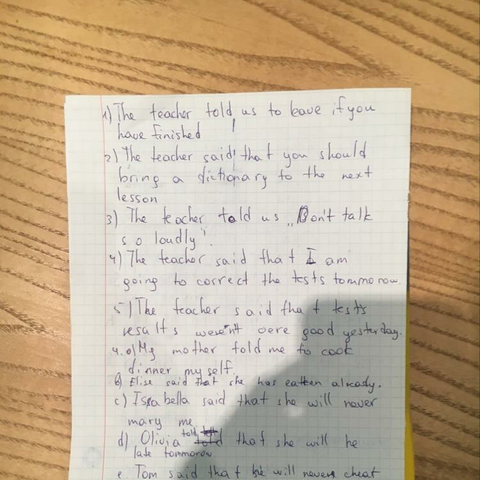 1) The teacher told us to leave if you
have finished
2) The teacher said that you should
bring a dictionary to the next
lesson
3) The teacher told us „Don't talk
so loudly".
4) The teacher said that I am
going to correct the tests tommorow.
5) The teacher said that test's
results were good yesterday.
4. a) My mother told me to cook
dinner myself.
b) Elise said that she has eatten already.
c) Issabella said that she will never
mary me
d) Olivia told that she will be
late tommorow
e. Tom said that he will never cheat